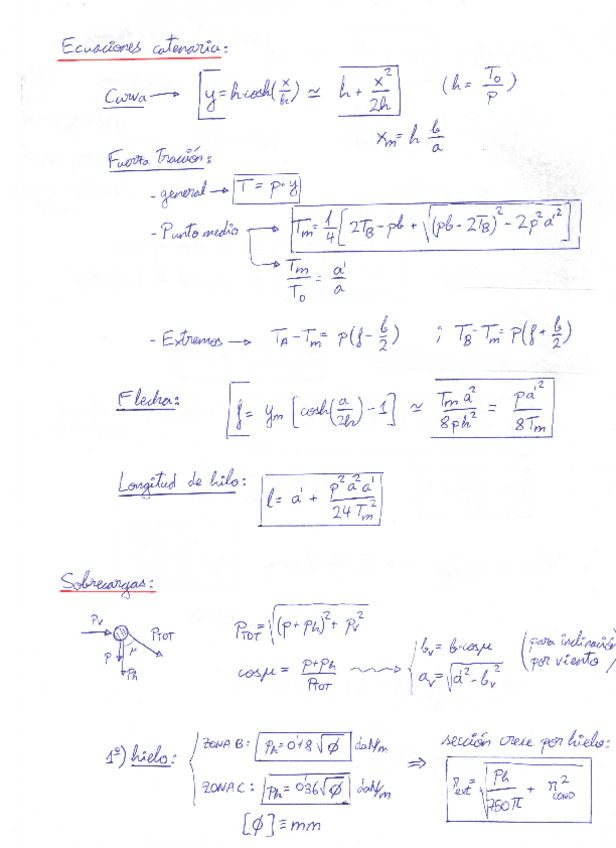 Ecuaciones catenaria:
Curva → y = h·cosh(x/h) ≃ h + x²/2h (h = T₀/p)
xₘ = h b/a
Fuerza Tracción:
- general → T = p·y
- Punto medio → Tₘ = 1/4 [2T_B - pb + √((pb - 2T_B)² - 2p²a'²)]
Tₘ/T₀ = a'/a
- Extremos → T_A - Tₘ = p(f - b/2) ; T_B - Tₘ = p(f + b/2)
Flecha: f = yₘ [cosh(a/2h) - 1] ≃ Tₘa²/8ph² = pa'²/8Tₘ
Longitud de hilo: l = a' + p²a²a'/24Tₘ²
Sobrecargas:
Pv P_TOT P μ Ph
P_TOT = √((p + ph)² + pv²)
cosμ = (p + ph)/P_TOT → { bv = b·cosμ av = √(a'² - bv²) (para inclinación por viento)
1º) hielo: { ZONA B: ph = 0'18√ϕ daN/m ⇒ sección crece por hielo:
ZONA C: ph = 0'36√ϕ daN/m r_ext = √(ph/750π + r²_COND)
[ϕ] ≡ mm